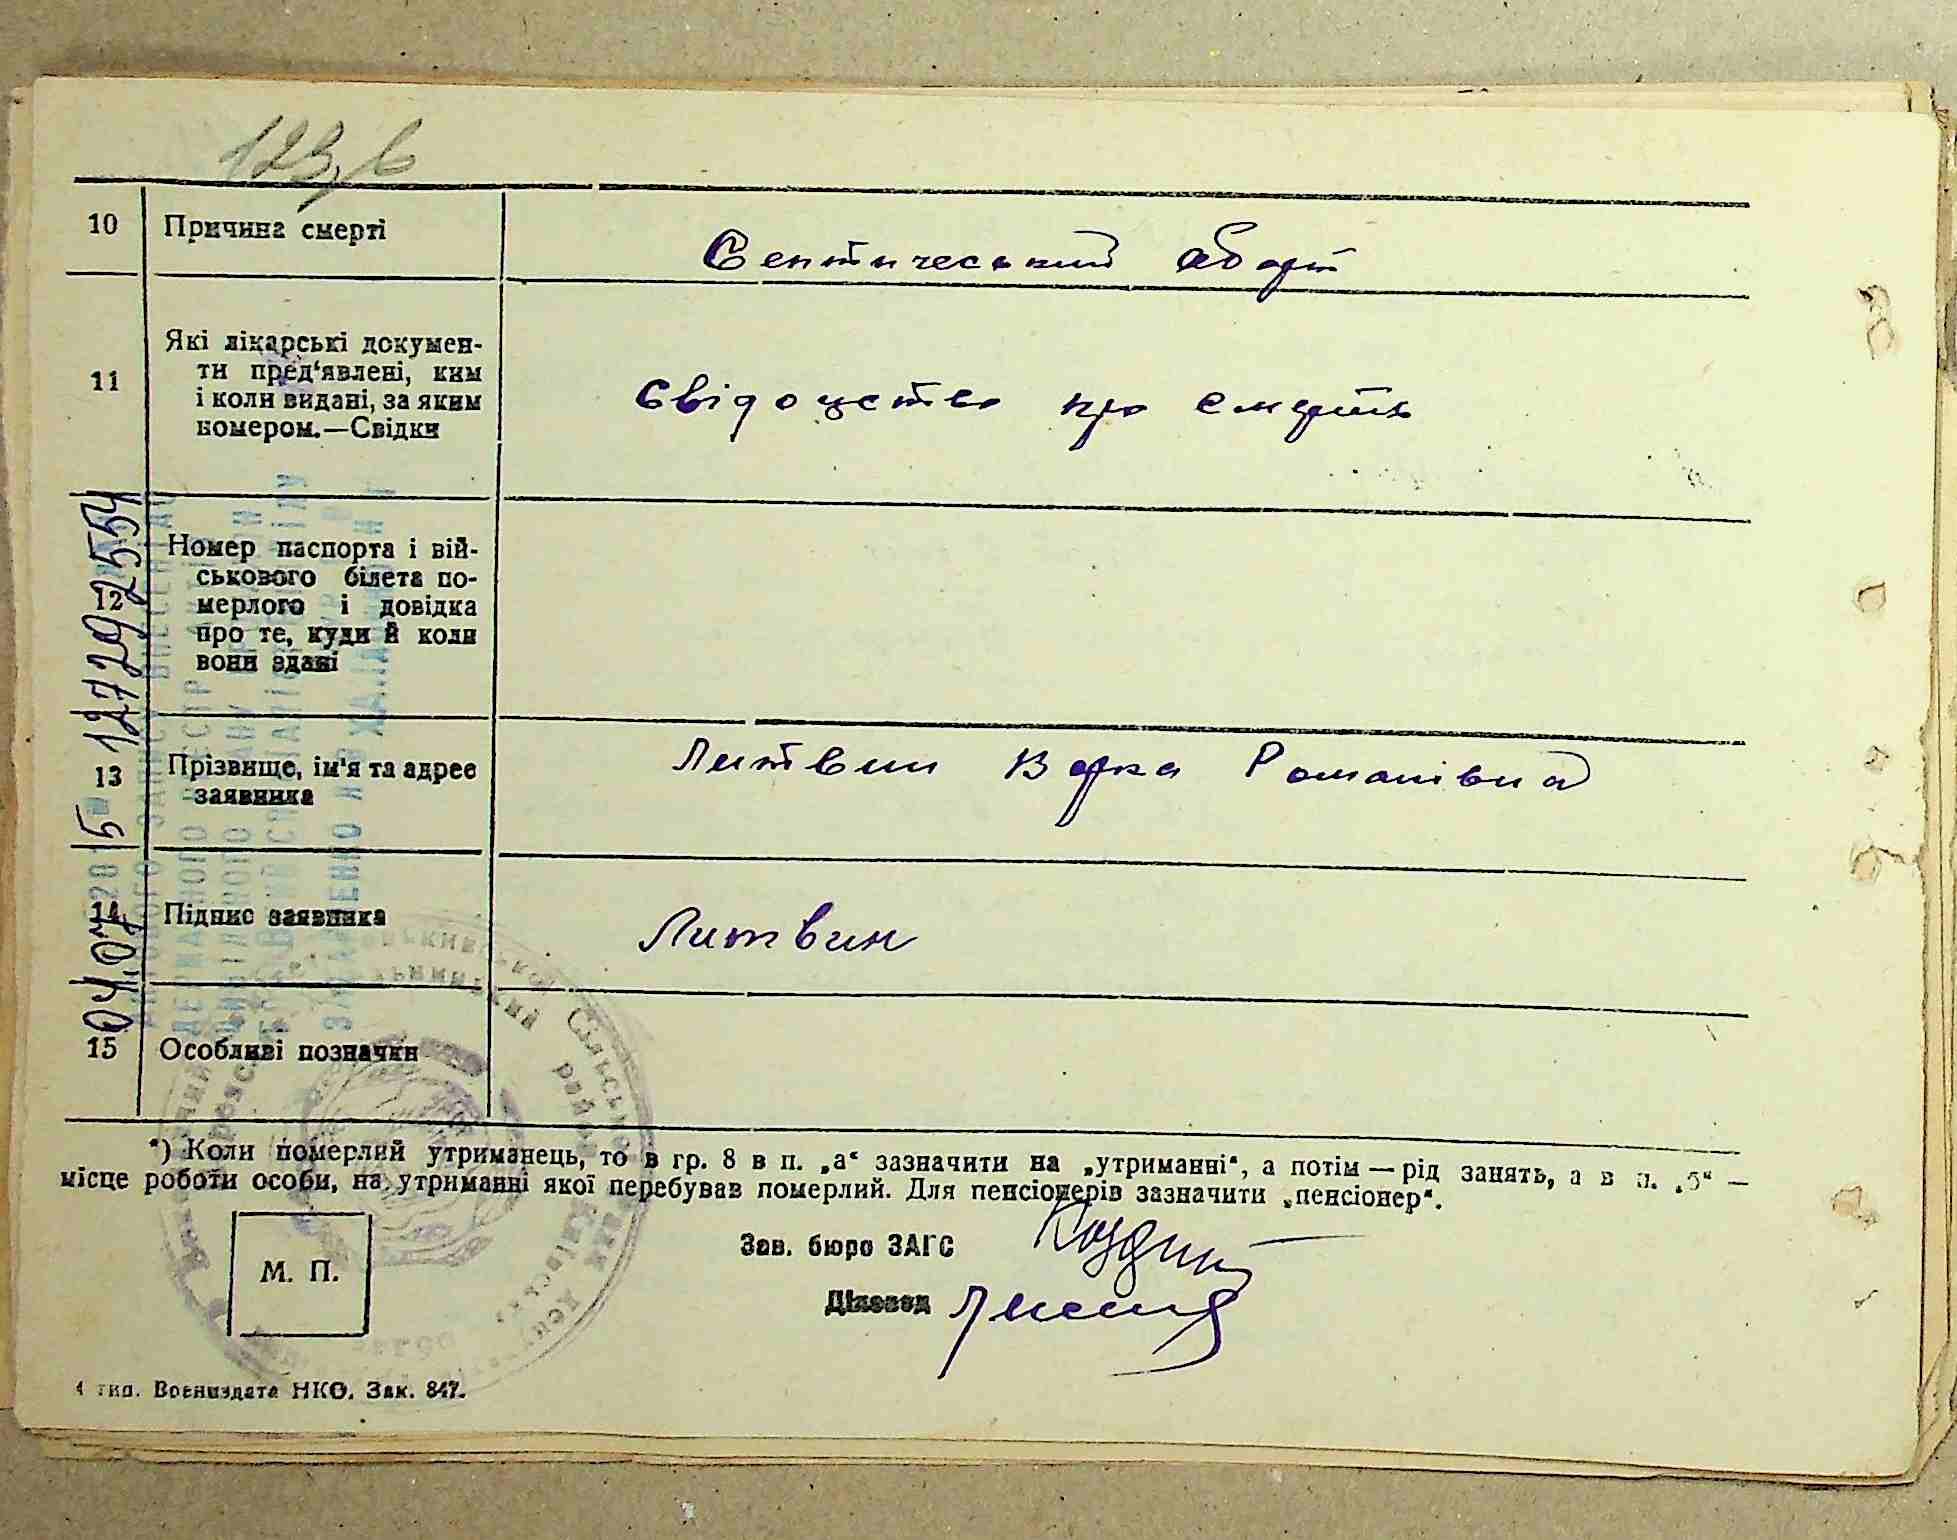 123, б
10 Причина смерті Септический аборт
11 Які лікарські докумен-
ти пред'явлені, ким
і коли видані, за яким
номером.—Свідки
Свідоцтво про смерть
12 Номер паспорта і вій-
ськового білета по-
мерлого і довідка
про те, куди й коли
вони здані
13 Прізвище, ім'я та адрес
заявника
Литвин Варка Романівна
14 Підпис заявника Литвин
15 Особливі позначки
04.07 2015 12729255
*) Коли померлий утриманець, то в гр. 8 в п. „а“ зазначити на „утриманні“, а потім — рід занять, а в п. „б“ —
місце роботи особи, на утриманні якої перебував померлий. Для пенсіонерів зазначити „пенсіонер“.
М. П.
Зав. бюро ЗАГС
Діловод
4 тип. Воениздата НКО. Зак. 847.